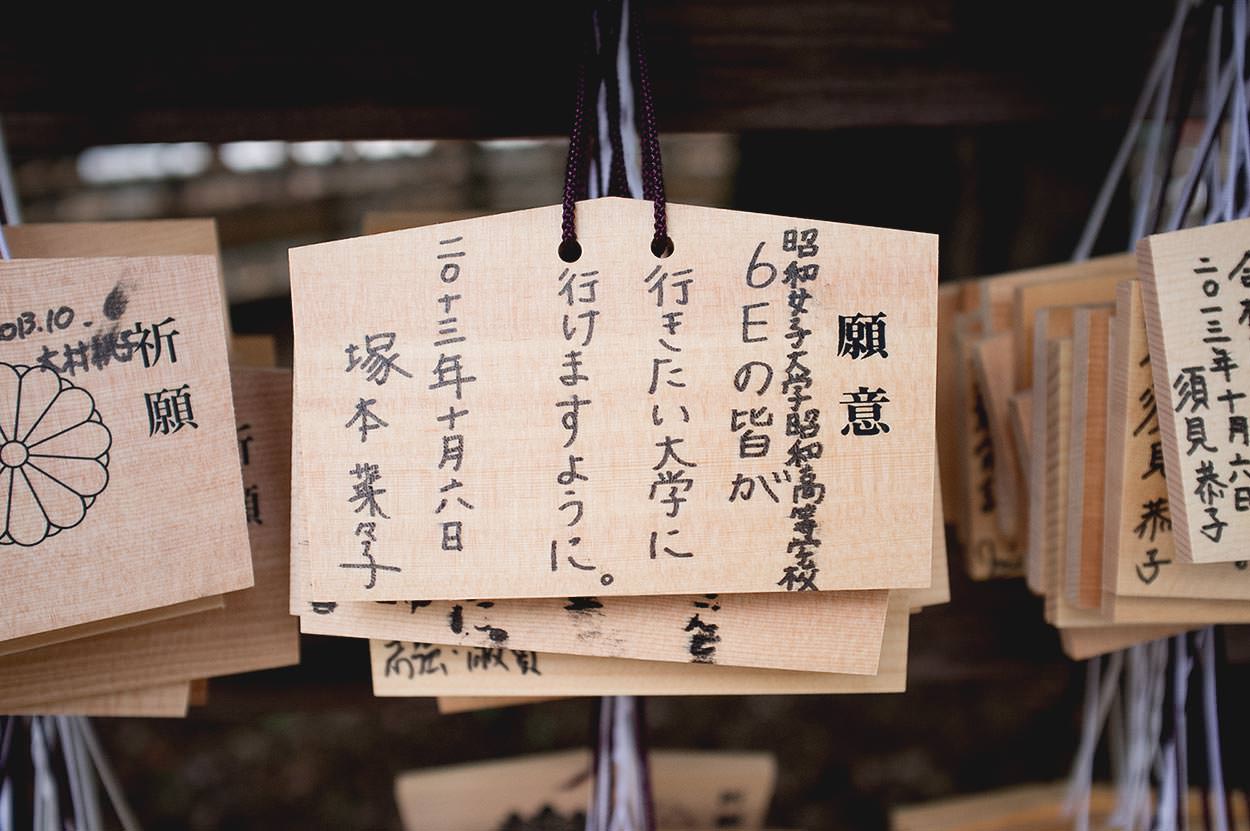 願意
昭和女子大学昭和高等学校
6Eの皆が
行きたい大学に
行けますように。
二〇十三年十月六日
塚本 菜々子
祈願
2013.10
二〇一三年十月六日
須見 恭子
須見 恭子